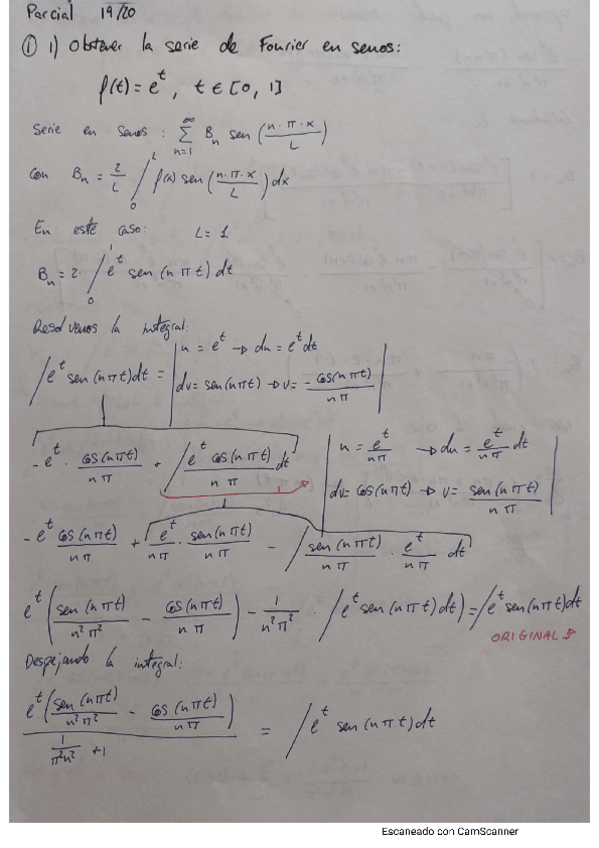 Parcial 19/20
① 1) Obtener la serie de Fourier en senos:
f(t) = e^t, t ∈ [0, 1]
Serie en senos: ∑_{n=1}^{∞} B_n sen (n·π·x / L)
Con B_n = 2/L ∫_0^L f(x) sen (n·π·x / L) dx
En este caso: L = 1
B_n = 2· ∫_0^1 e^t sen (n π t) dt
Resolvemos la integral:
∫ e^t sen (n π t) dt = | u = e^t → du = e^t dt
dv = sen(nπt) → v = - cos(nπt) / nπ |
- e^t · cos(nπt) / nπ + ∫ e^t cos(nπt) / nπ dt | u = e^t / nπ → du = e^t / nπ dt
dv = cos(nπt) → v = sen(nπt) / nπ |
- e^t cos(nπt) / nπ + e^t / nπ · sen(nπt) / nπ - ∫ sen(nπt) / nπ · e^t / nπ dt
e^t ( sen(nπt) / n²π² - cos(nπt) / nπ ) - 1 / n²π² · ∫ e^t sen(nπt) dt ) = ∫ e^t sen(nπt) dt
ORIGINAL
Despejando la integral:
e^t ( sen(nπt) / n²π² - cos(nπt) / nπ ) / ( 1 / π²n² + 1 ) = ∫ e^t sen(nπt) dt
Escaneado con CamScanner